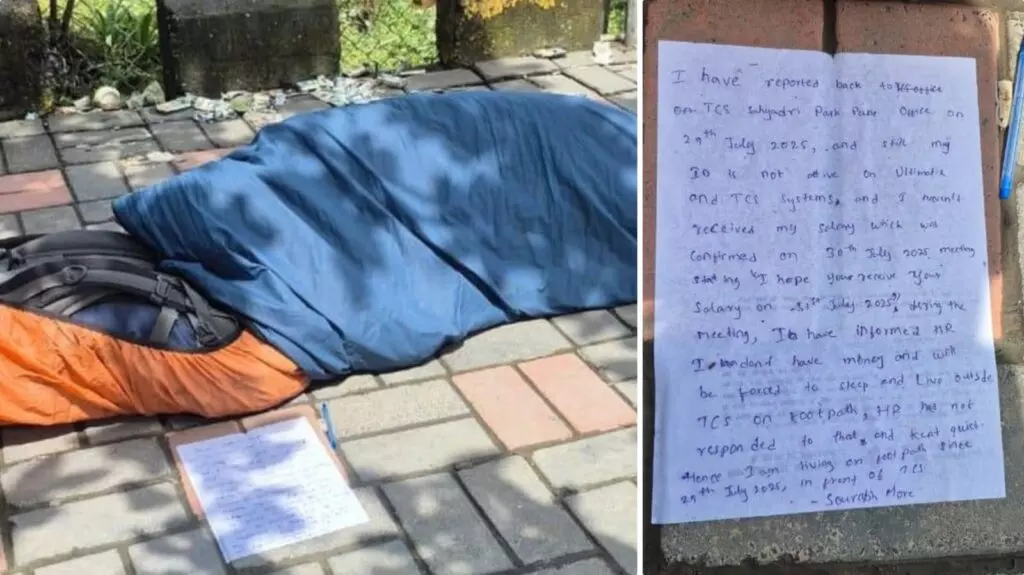 I have reported back to office
on TCS Sahyadri Park Pune Office on
29th July 2025, and still my
ID is not active on Ultimatix
and TCS Systems, and I havent
received my salary which was
confirmed on 30th July 2025 meeting
stating "I hope you receive your
Salary on 31st July 2025", during the
meeting, I have informed HR
I dont have money and will
be forced to sleep and Live outside
TCS on Footpath, HR has not
responded to that, and kept quiet.
Hence I am living on footpath since
29th July 2025, in front of TCS
- Saurabh More